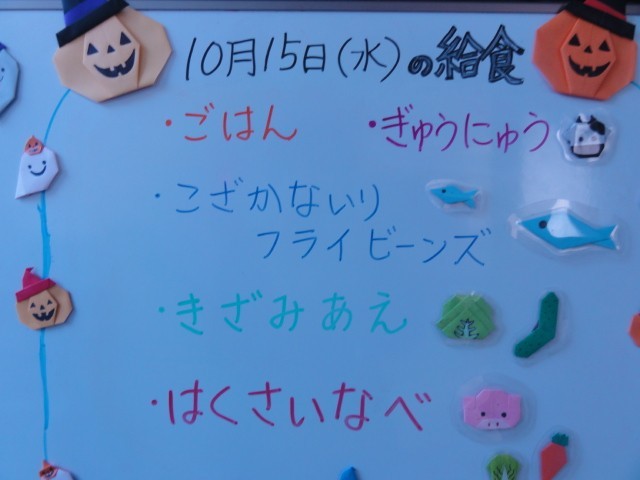 10月15日(水)の給食
・ごはん ・ぎゅうにゅう
・こざかないり
フライビーンズ
・きざみあえ
・はくさいなべ